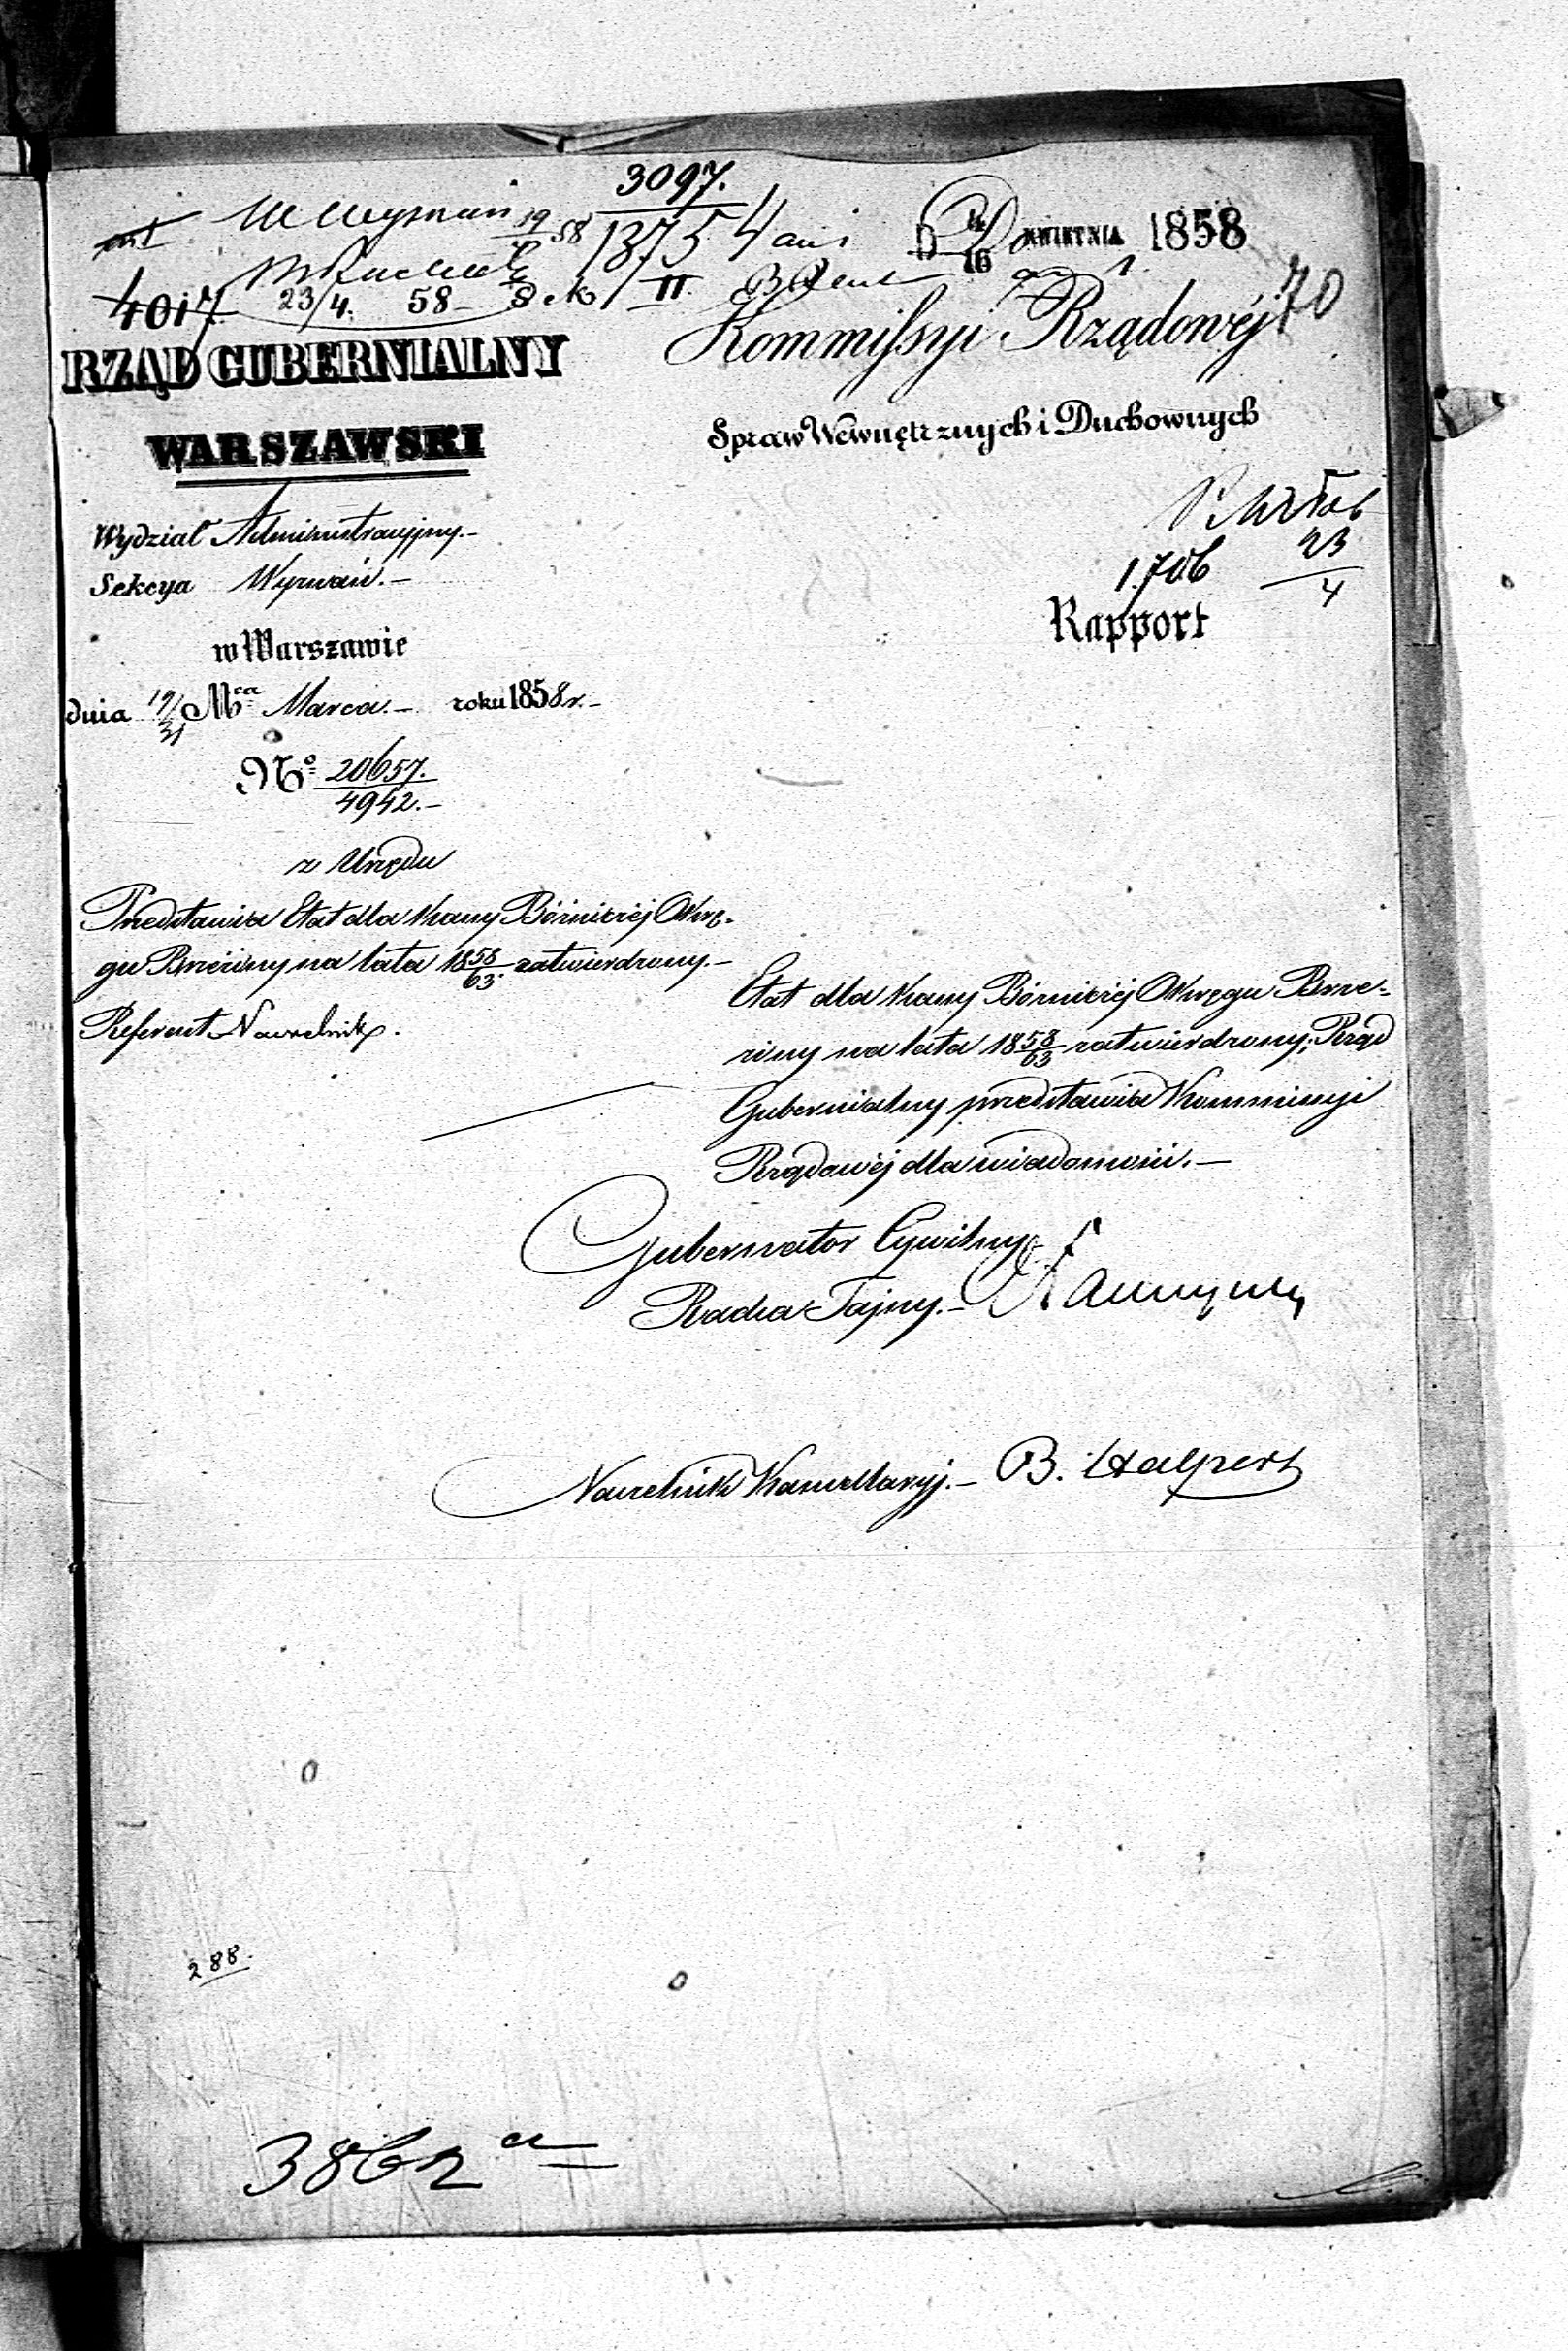 3097.
1375
19 58
4 16 KWIETNIA 1858
4017. 23/4. 58 – II.
70
RZĄD GUBERNIALNY
WARSZAWSKI
Kommissyi Rządowéj
Spraw Wewnętrznych i Duchownych
Wydział Administracyjny.–
Sekcya Wyznań.–
23
4
1706
Rapport
w Warszawie
dnia 19/31 Mca Marca.– roku 1858 r.–
No 20657.
4942.–
z Urzędu
Przedstawia Etat dla Kassy Bóżniczéj Okrę-
gu Brzeziny na lata 1858/63. zatwierdzony.–
Referent Naczelnik.
Etat dla Kassy Bóżniczéj Okręgu Brze-
ziny na lata 1858/63 zatwierdzony; Rząd
Gubernialny przedstawia Kommissyi
Rządowéj dla wiadomości.–
Gubernator Cywilny
Radca Tajny.–
Naczelnik Kancellaryj.– B. Halpert
288.
3862 a